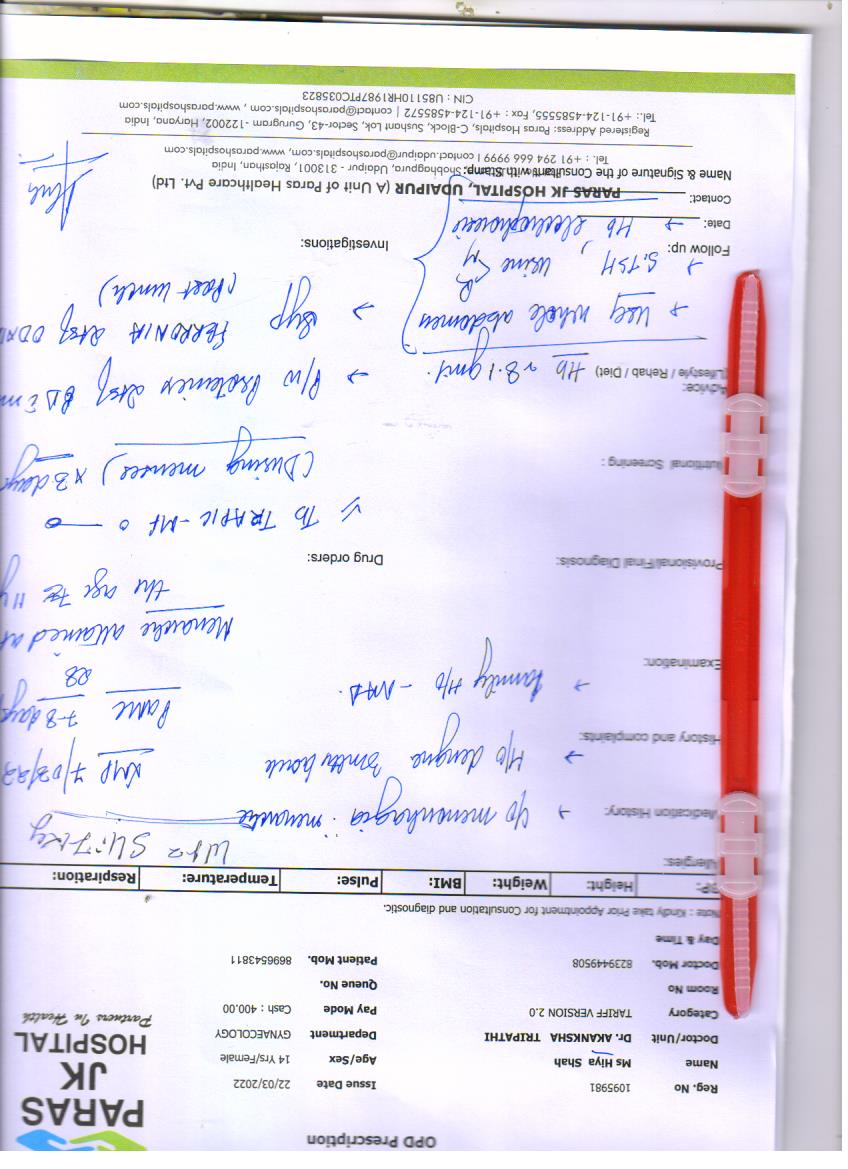 PARAS
JK
HOSPITAL
Partners In Health
OPD Prescription
Reg. No 1095981 Issue Date 22/03/2022
Name Ms Hiya Shah Age/Sex 14 Yrs/Female
Doctor/Unit Dr. AKANKSHA TRIPATHI Department GYNAECOLOGY
Category TARIFF VERSION 2.0 Pay Mode Cash : 400.00
Room No Queue No.
Doctor Mob. 8239449508 Patient Mob. 8696543811
Day & Time
Note : Kindly take Prior Appointment for Consultation and diagnostic.
BP: Height: Weight: BMI: Pulse: Temperature: Respiration:
Allergies:
Medication History:
→ menorrhagia menarche
History and complaints:
→ H/O dengue 3mths back
LMP 7/03/22
7-8 days
28
Examination:
→ family H/O - NAD.
Menarche attained at
the age 11y
Provisional/Final Diagnosis:
Drug orders:
Tb TRAPIC-MF
(During menses) x 3 days
Nutritional Screening :
Advice:
(Lifestyle / Rehab / Diet) Hb ~ 8.1 gm%.
→ P/w Proteinex 2tsf BD
→ USG whole abdomen
→ Syp FERRONIA 2tsf OD
(Post lunch)
→ S.TSH, Urine R/M
Follow up:
Investigations:
→ Hb electrophoresis
Date:
Contact:
Name & Signature of the Consultant with Stamp:
PARAS JK HOSPITAL, UDAIPUR (A Unit of Paras Healthcare Pvt. Ltd)
Shobhagpura, Udaipur - 313001, Rajasthan, India
Tel. : +91 294 666 9999 | contact.udaipur@parashospitals.com, www.parashospitals.com
Registered Address: Paras Hospitals, C-Block, Sushant Lok, Sector-43, Gurugram -122002, Haryana, India
Tel.: +91-124-4585555, Fax : +91-124-4585572 | contact@parashospitals.com , www.parashospitals.com
CIN : U85110HR1987PTC035823